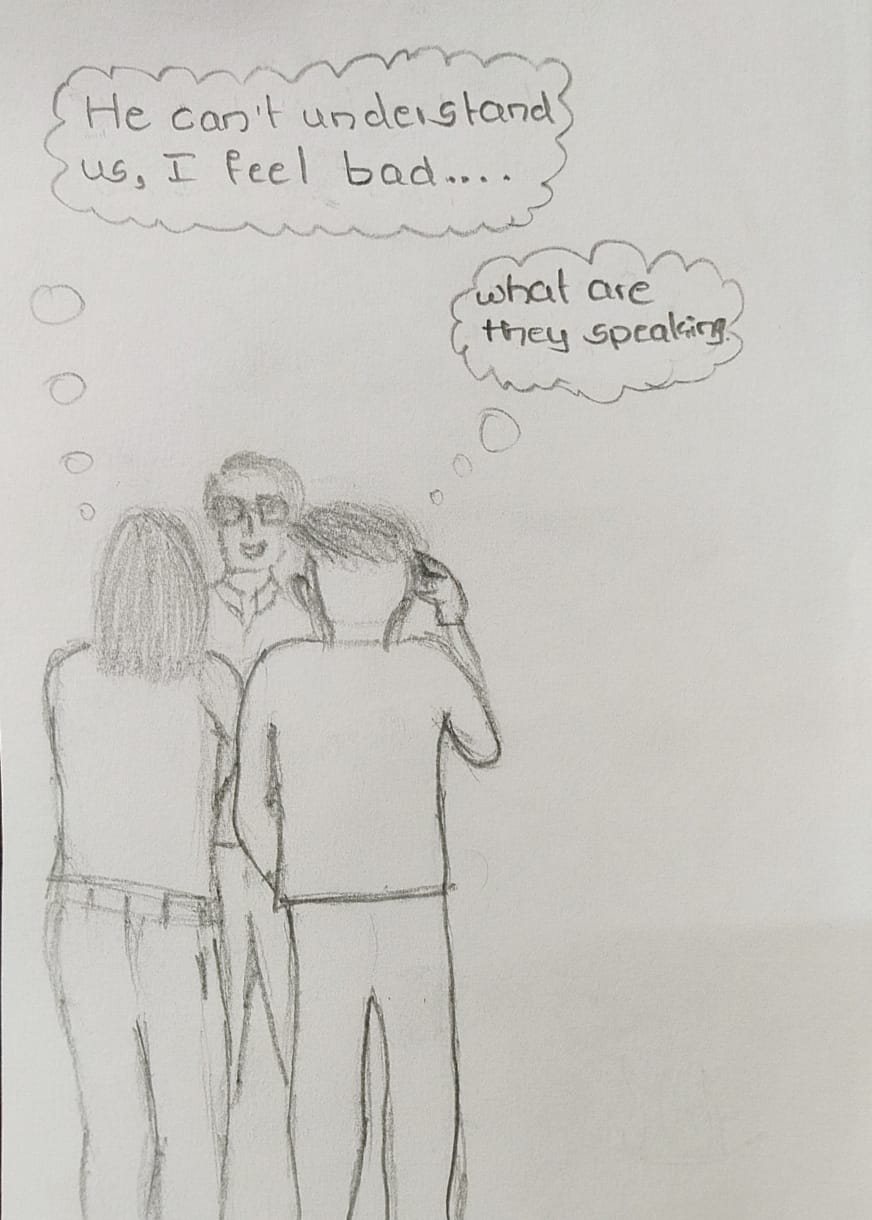 He can't understand
us, I feel bad....
what are
they speaking.